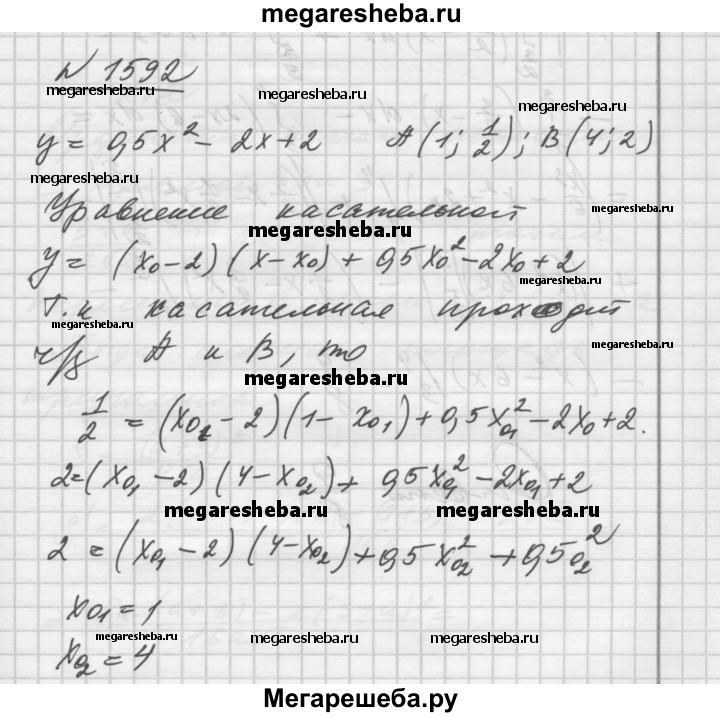 megaresheba.ru
N 1592
megaresheba.ru megaresheba.ru megaresheba.ru
y = 0,5x² - 2x + 2 A(1; 1/2); B(4; 2)
megaresheba.ru
Уравнение касательной
megaresheba.ru megaresheba.ru
y = (x₀-2)(x-x₀) + 0,5x₀² - 2x₀ + 2
megaresheba.ru
Т.к касательная проходит
megaresheba.ru
ч/з A и B, то
megaresheba.ru
1/2 = (x₀₁ - 2)(1 - x₀₁) + 0,5x₀₁² - 2x₀ + 2.
2 = (x₀₁ - 2)(4 - x₀₂) + 0,5x₀₁² - 2x₀₁ + 2
megaresheba.ru megaresheba.ru
2 = (x₀₁ - 2)(4 - x₀₂) + 0,5x₀₂² + 0,5₀₂²
x₀₁ = 1
megaresheba.ru megaresheba.ru megaresheba.ru
x₀₂ = 4
Мегарешеба.ру